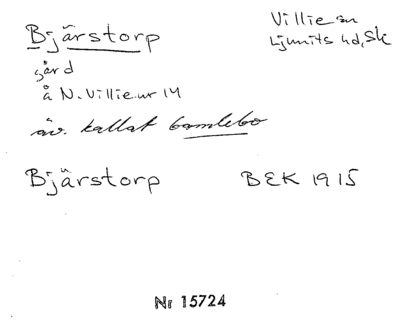 Bjärstorp
Villie sn
Ljunits hd, Sk
gård
å N. Villie nr 14
äv. kallat Gamlebo
Bjärstorp BEK 1915
Nr 15724